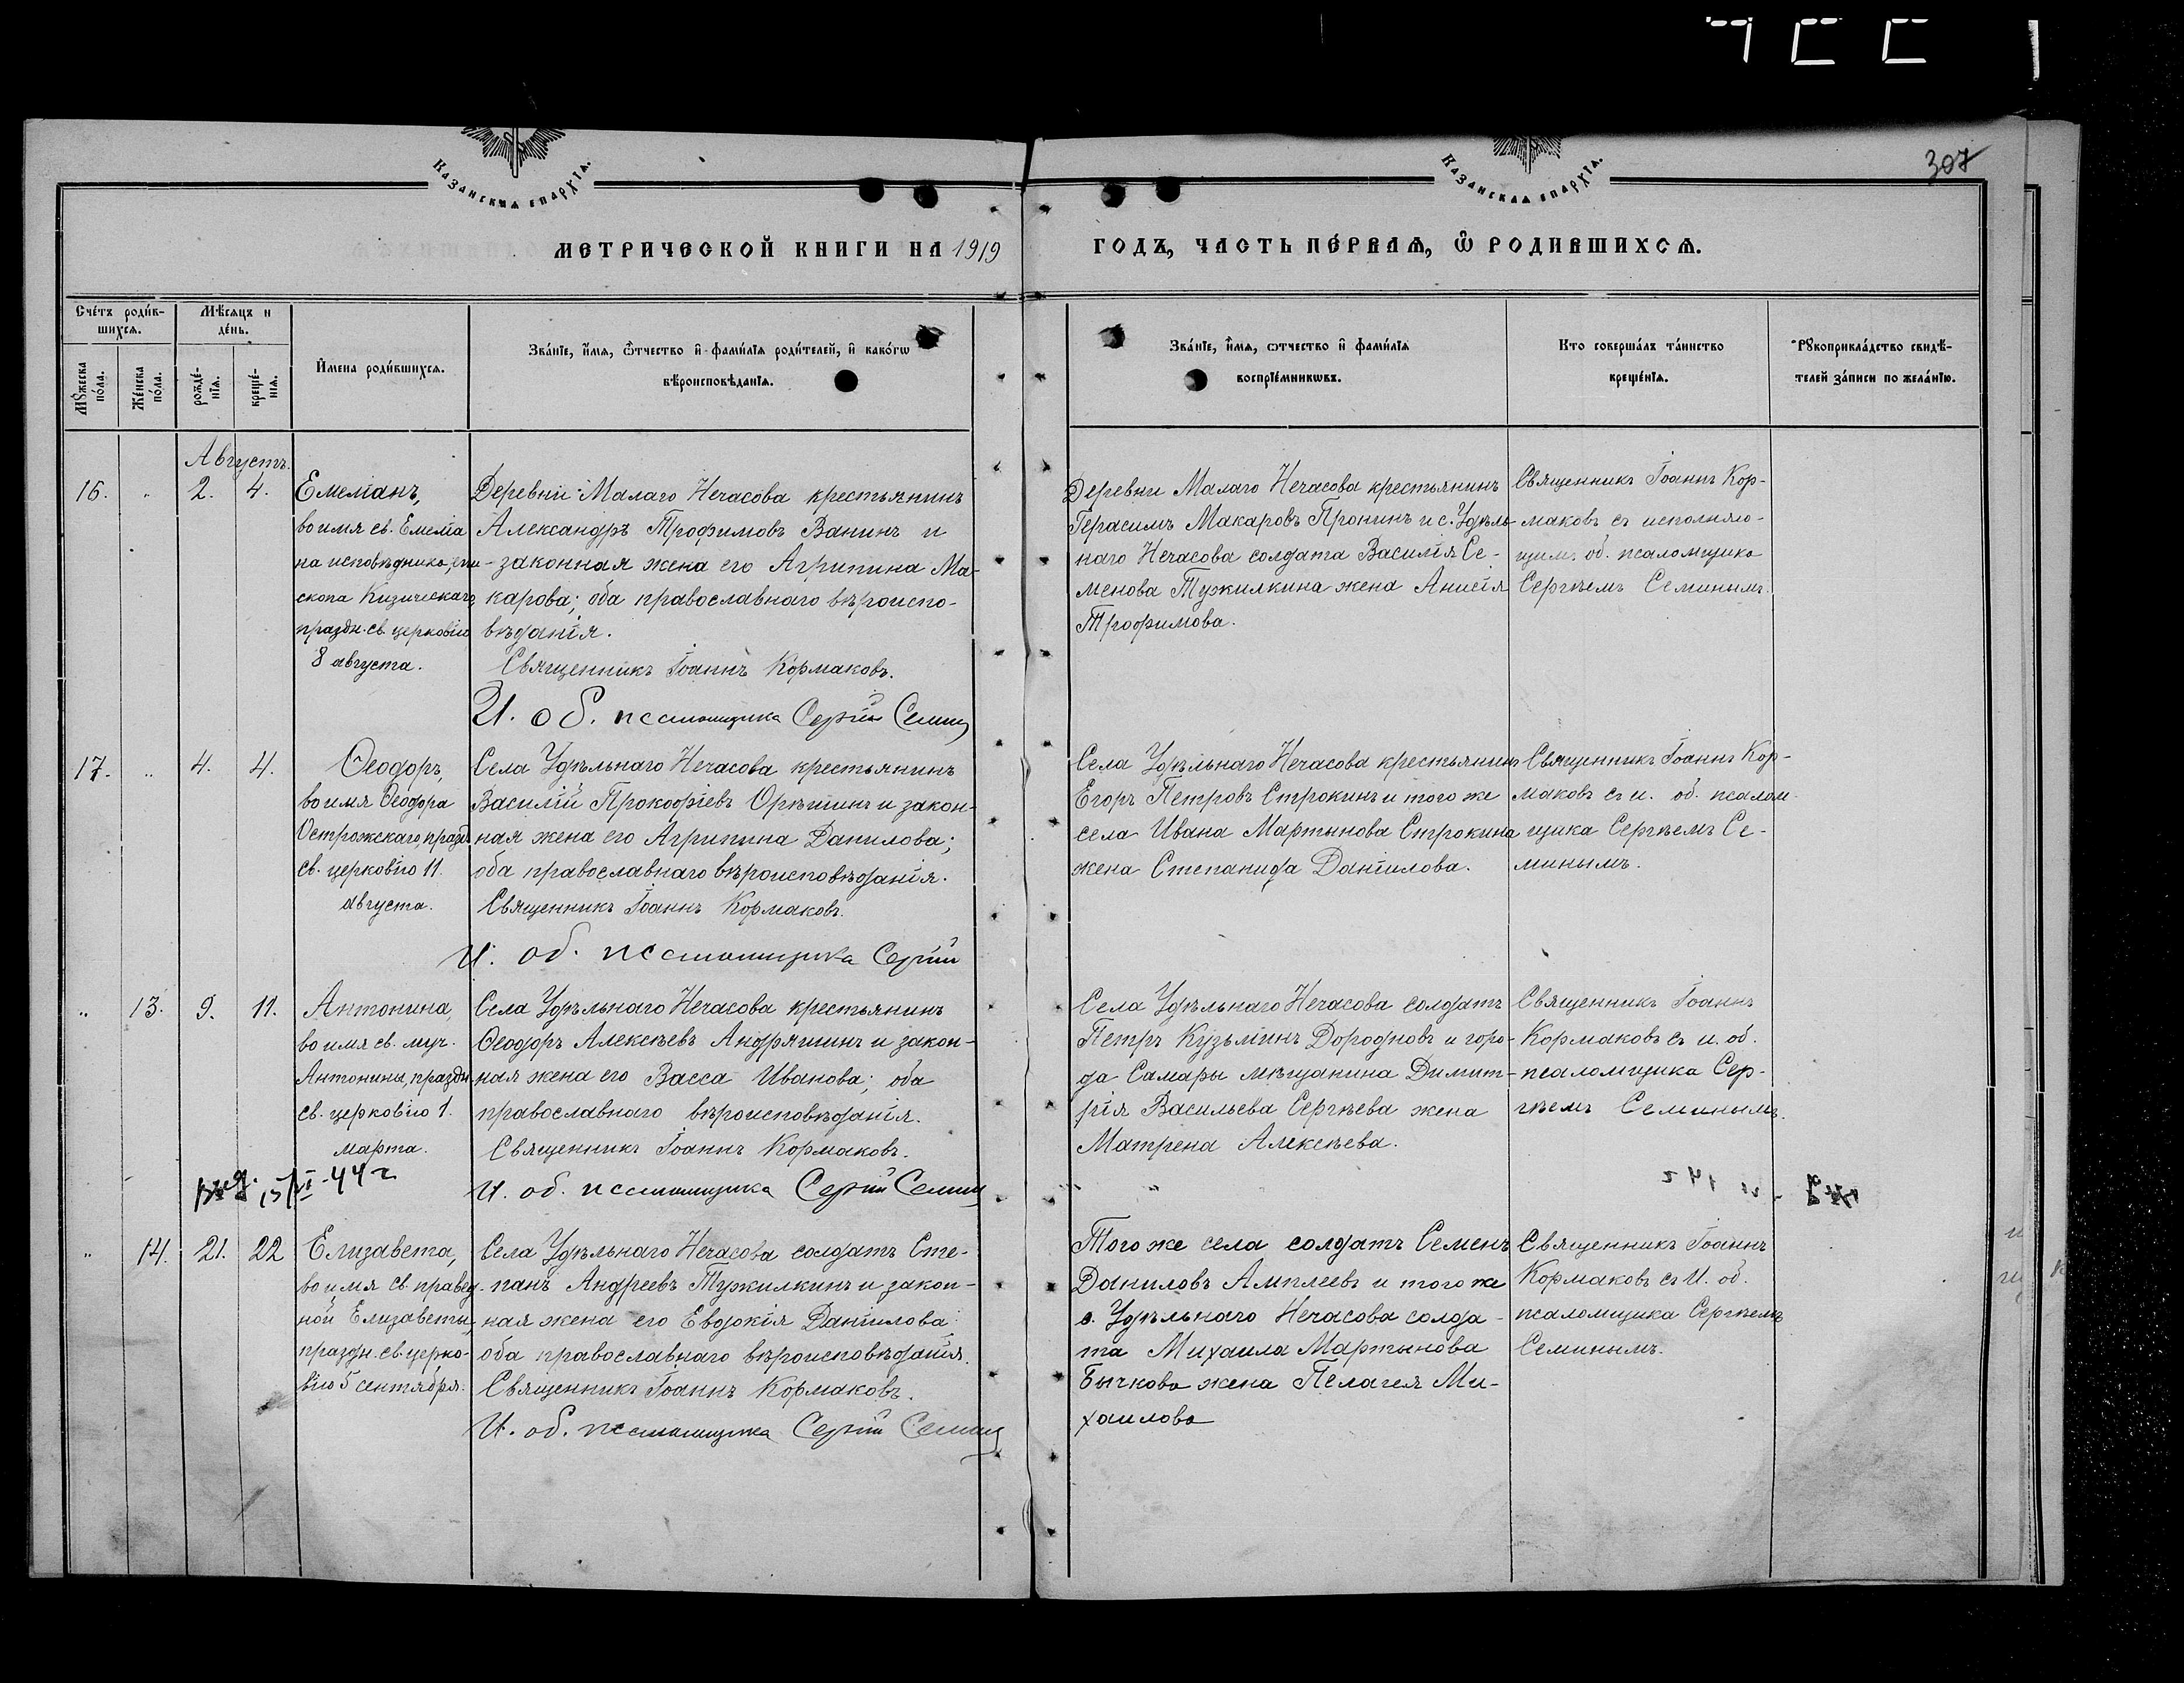 307
КАЗАНСКАѦ ЕПАРХІА.
КАЗАНСКАѦ ЕПАРХІА.
МЕТРИЧЕСКОЙ КНИГИ НА 1919
ГОДЪ, ЧАСТЬ ПЕ́РВАѦ, Ѽ РОДИВШИХСѦ.
Сче́тъ роди́в-
шихсѧ.
Мѣ́сѧцъ и
де́нь.
Мꙋ́жеска
по́ла.
Же́нска
по́ла.
рожде́-
нїѧ.
креще́-
нїѧ.
И҆мена роди́вшихсѧ.
Зва́нїе, и҆́мѧ, ѻ҆́тчество и҆ фами́лїѧ роди́телей, и҆ како́гѡ
вѣроисповѣ́данїѧ.
Зва́нїе, и҆́мѧ, ѻтчество и҆ фами́лїѧ
воспрїе́мникѡвъ.
Кто соверша́лъ та́инство
креще́нїѧ.
Рꙋкоприкла́дство свидѣ́-
телей за́писи по жела́нїю.
Августъ.
16. " 2. 4.
Емеліанъ,
во имя св. Емеліа
на исповѣдника, епи-
скопа Кизическаго,
праздн. св. церковію
8 августа.
Деревни Малаго Нечасова крестьянинъ
Александръ Трофимовъ Ванинъ и
законная жена его Агрипина Ма-
карова; оба православнаго вѣроиспо-
вѣданія.
Священникъ Іоаннъ Кормаковъ.
И. об. псаломщика Сергій Семинъ
Деревни Малаго Нечасова крестьянинъ
Герасимъ Макаровъ Пронинъ и с. Удѣль-
наго Нечасова солдата Василія Се-
менова Тужилкина жена Анисія
Трофимова.
Священникъ Іоаннъ Кор-
маковъ съ исполняю-
щим. об. псаломщика
Сергѣемъ Семинымъ.
17. " 4. 4.
Ѳеодоръ,
во имя Ѳеодора
Острожскаго, праздн.
св. церковію 11.
августа.
Села Удѣльнаго Нечасова крестьянинъ
Василій Прокофіевъ Орѣшинъ и закон-
ная жена его Агрипина Данилова;
оба православнаго вѣроисповѣданія.
Священникъ Іоаннъ Кормаковъ.
И. об. псаломщика Сергій
Села Удѣльнаго Нечасова крестьянинъ
Егоръ Петровъ Строкинъ и того же
села Ивана Мартынова Строкина
жена Степанида Даніилова.
Священникъ Іоаннъ Кор-
маковъ съ и. об. псалом-
щика Сергѣемъ Се-
минымъ.
" 13. 9. 11.
Антонина,
во имя св. муч.
Антонины, праздн.
св. церковію 1.
марта.
Села Удѣльнаго Нечасова крестьянинъ
Ѳеодоръ Алексѣевъ Андряшинъ и закон-
ная жена его Васса Иванова; оба
православнаго вѣроисповѣданія.
Священникъ Іоаннъ Кормаковъ.
И. об. псаломщика Сергій Семинъ
Села Удѣльнаго Нечасова солдатъ
Петръ Кузьминъ Дородновъ и горо-
да Самары мѣщанина Димит-
рія Васильева Сергѣева жена
Матрена Алексѣева.
Священникъ Іоаннъ
Кормаковъ съ и. об.
псаломщика Сер-
гѣемъ Семинымъ.
15/VI-44 г
" 14. 21. 22
Елизавета,
во имя св. правед-
ной Елизаветы,
праздн. св. церко-
вію 5 сентября.
Села Удѣльнаго Нечасова солдатъ Сте-
панъ Андреевъ Тужилкинъ и закон-
ная жена его Евдокія Даніилова
оба православнаго вѣроисповѣданія.
Священникъ Іоаннъ Кормаковъ.
И. об. псаломщика Сергій Семинъ
Того же села солдатъ Семенъ
Даниловъ Амплеевъ и того же
с. Удѣльнаго Нечасова солда-
та Михаила Мартынова
Бычкова жена Пелагея Ми-
хаилова
Священникъ Іоаннъ
Кормаковъ съ И. об.
псаломщика Сергѣемъ
Семинымъ.